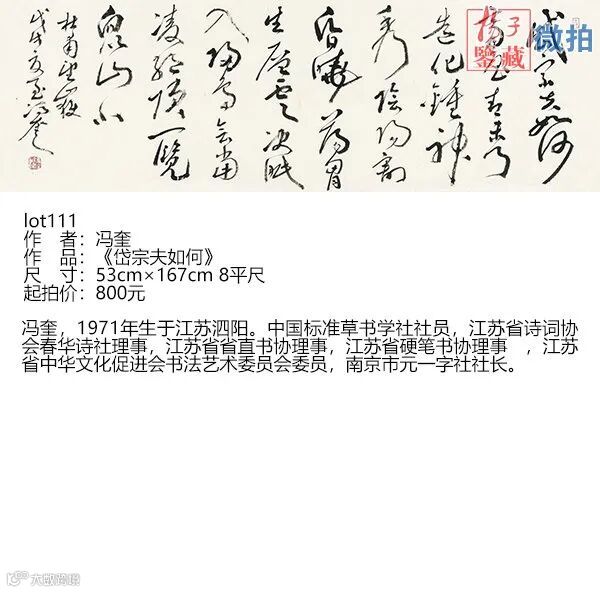 岱宗夫如何
齊魯青未了
造化鍾神
秀陰陽割
昏曉蕩胷
生層雲決眦
入歸鳥會當
凌絕頂一覽
衆山小
杜甫望嶽
戊戌夏至馮奎
子
鑒藏
微拍
lot111
作 者：冯奎
作 品：《岱宗夫如何》
尺 寸：53cm×167cm 8平尺
起拍价：800元
冯奎，1971年生于江苏泗阳。中国标准草书学社社员，江苏省诗词协
会春华诗社理事，江苏省省直书协理事，江苏省硬笔书协理事 ，江苏
省中华文化促进会书法艺术委员会委员，南京市元一字社社长。